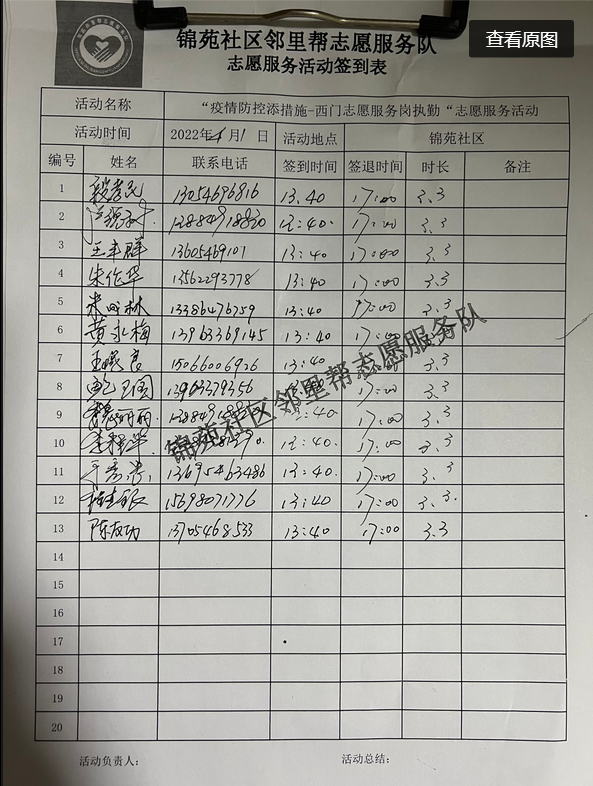 查看原图
锦苑社区邻里帮志愿服务队
志愿服务活动签到表
活动名称 “疫情防控添措施-西门志愿服务岗执勤“志愿服务活动
活动时间 2022年 月1日 活动地点 锦苑社区
编号 姓名 联系电话 签到时间 签退时间 时长 备注
1 13054696816 13.40 17:00 3.3
2 17:00 3.3
3 王丰群 13605469101 13:40 17:00 3.3
4 朱作华 13562293778 13:40 17:00 3.3
5 林 13386476759 13:40 17:00 3.3
6 黄永梅 13963369145 13:40 17:00 3.3
7 15066006926 13:40 17:00 3.3
8 17:00 3.3
9 丽 :40 17:00 3.3
10 17:00 3.3
11 13695463486 13:40 17:00 3.3
12 15698071776 13:40 17:00 3.3
13 陈友功 13705468533 13:40 17:00 3.3
14
15
16
17
18
19
20
锦苑社区邻里帮志愿服务队
活动负责人： 活动总结：